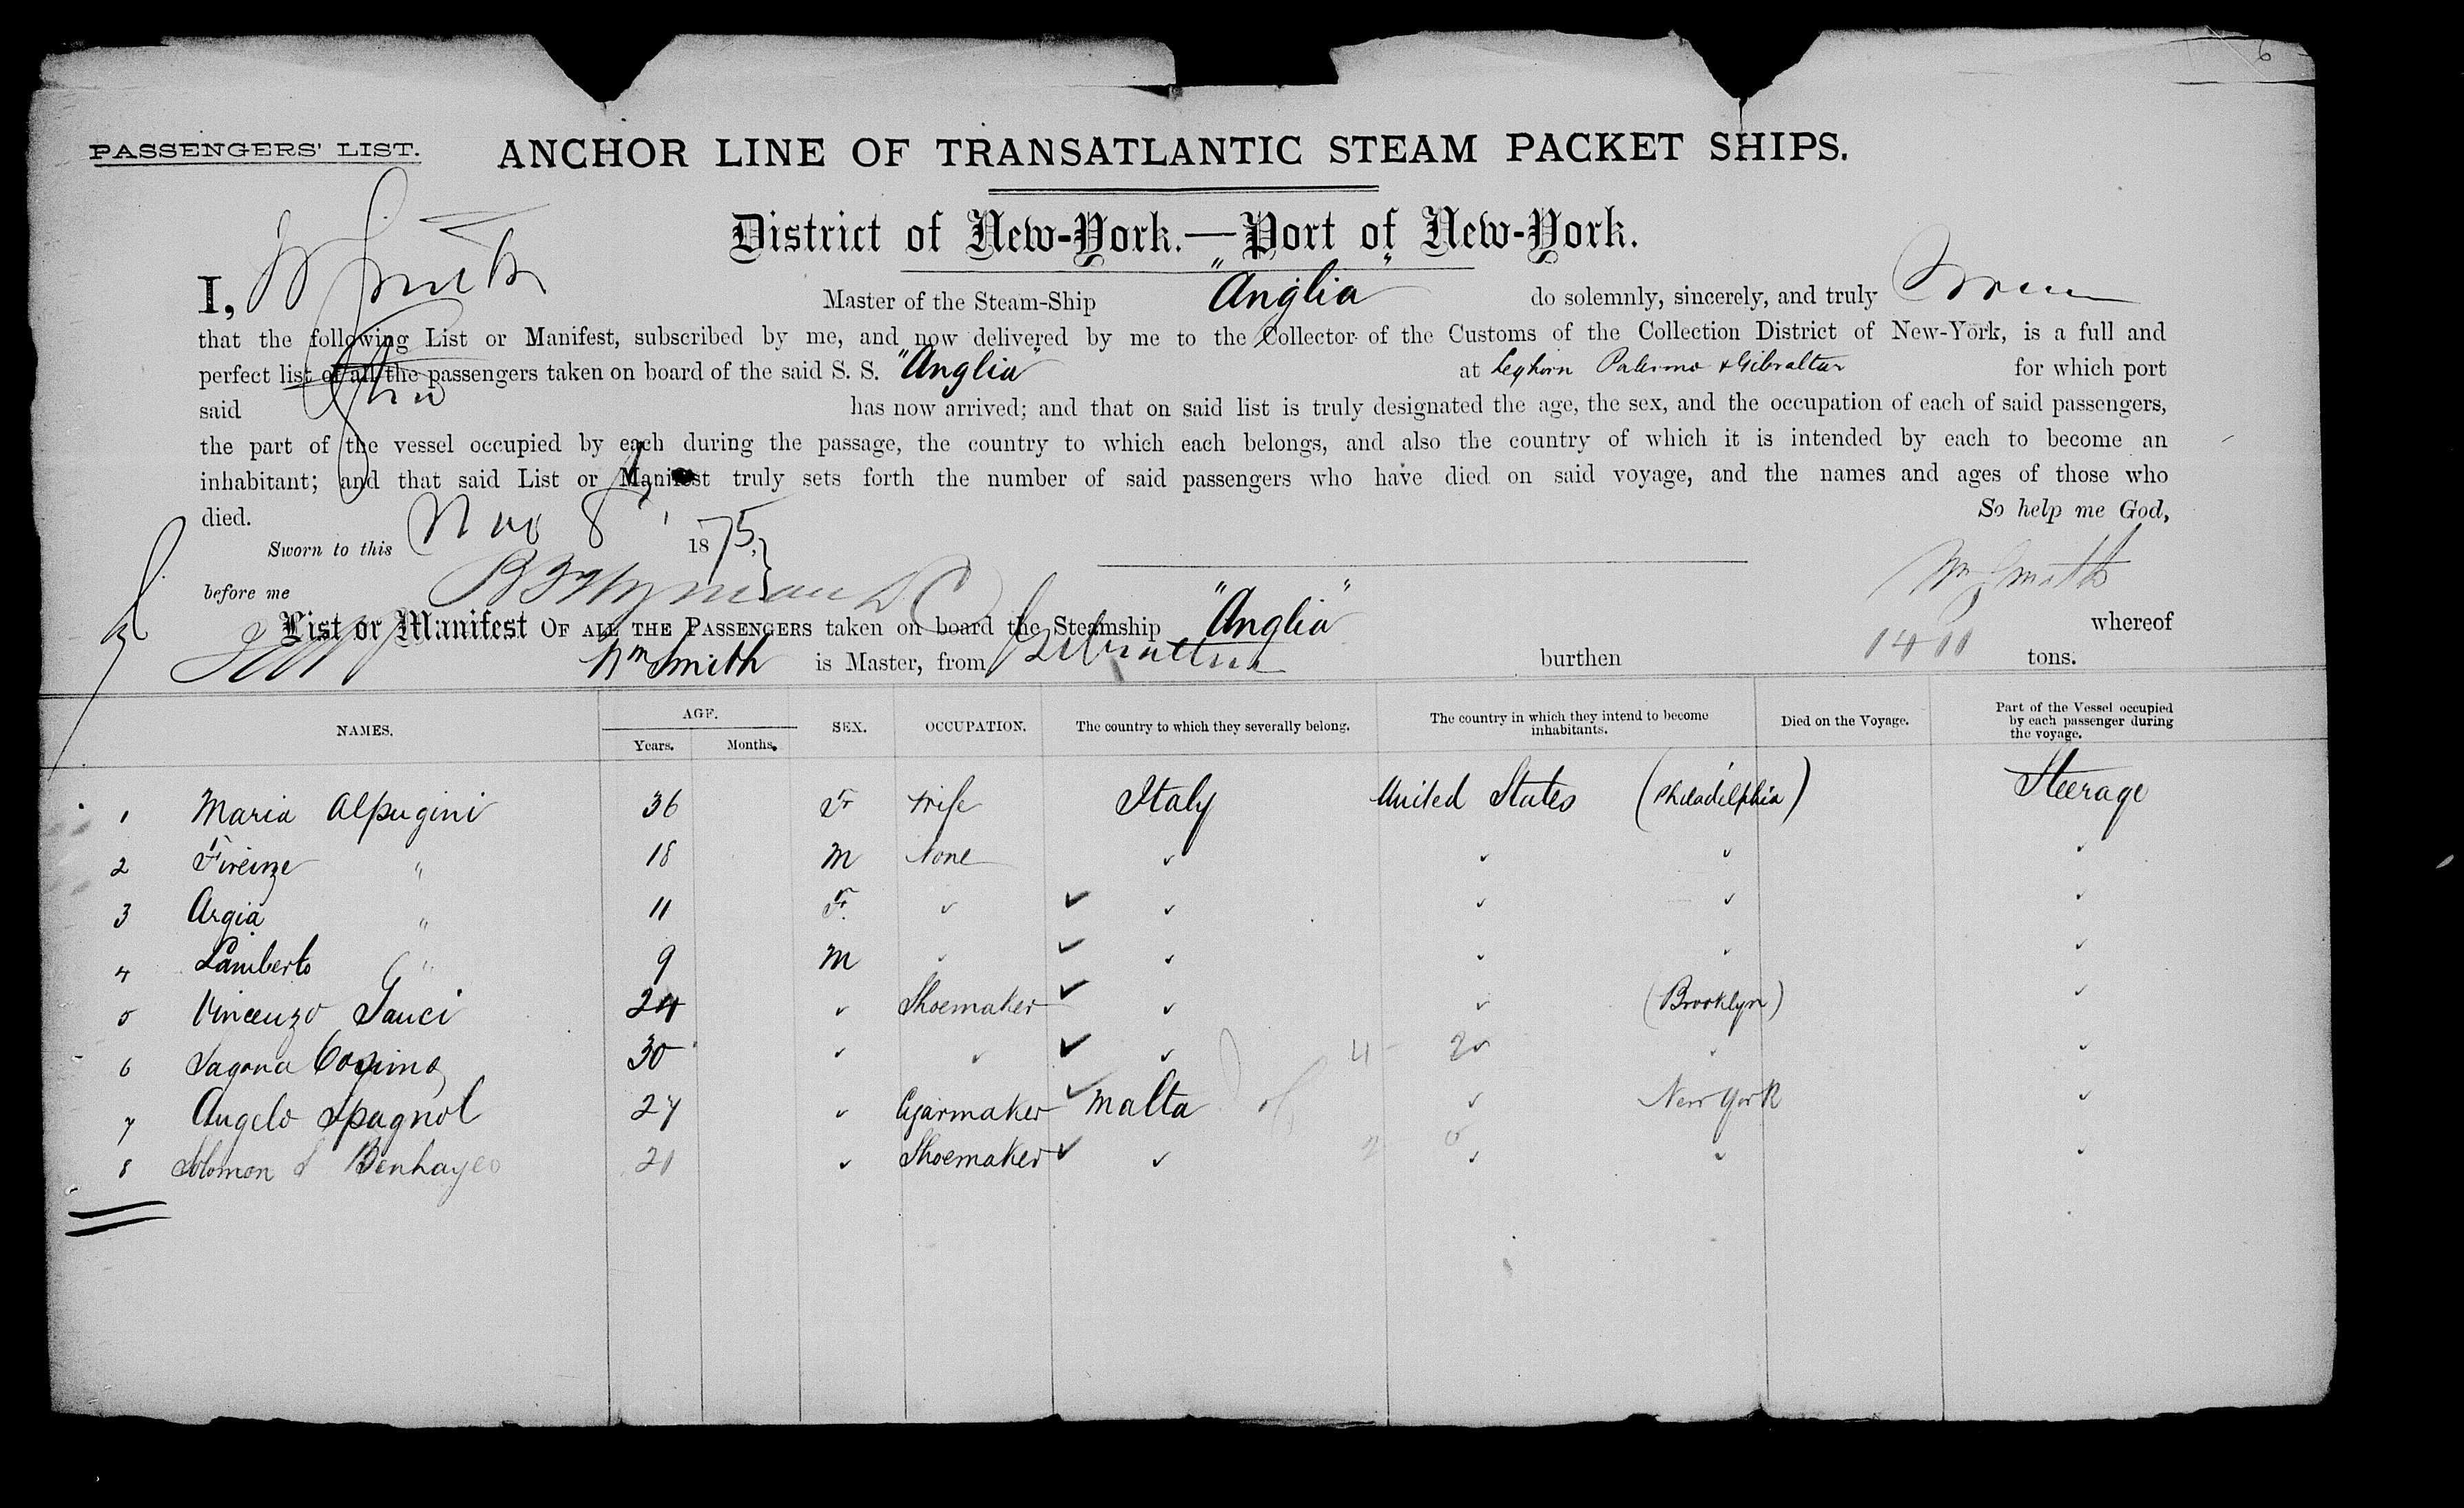 6
PASSENGERS' LIST. ANCHOR LINE OF TRANSATLANTIC STEAM PACKET SHIPS.
District of New-York.—Port of New-York.
I, W Smith Master of the Steam-Ship "Anglia" do solemnly, sincerely, and truly
that the following List or Manifest, subscribed by me, and now delivered by me to the Collector of the Customs of the Collection District of New-York, is a full and
perfect list of all the passengers taken on board of the said S. S. "Anglia" at Leghorn Palermo & Gibraltar for which port
said has now arrived; and that on said list is truly designated the age, the sex, and the occupation of each of said passengers,
the part of the vessel occupied by each during the passage, the country to which each belongs, and also the country of which it is intended by each to become an
inhabitant; and that said List or Manifest truly sets forth the number of said passengers who have died on said voyage, and the names and ages of those who
died. So help me God,
Sworn to this Nov 8 1875,
before me Wm Smith
List or Manifest OF ALL THE PASSENGERS taken on board the Steamship "Anglia" whereof
Wm Smith is Master, from Gibraltar burthen tons.
NAMES. AGE. Years. Months. SEX. OCCUPATION. The country to which they severally belong. The country in which they intend to become inhabitants. Died on the Voyage. Part of the Vessel occupied by each passenger during the voyage.
1 Maria Alpugini 36 F wife Italy United States (Philadelphia) Steerage
2 Firenze " 18 M None ✓ ✓ ✓ ✓
3 Argia " 11 F. ✓ ✓ ✓ ✓ ✓ ✓
4 Lamberto " 9 M ✓ ✓ ✓ ✓ ✓ ✓
5 Vincenzo Gauci 24 ✓ Shoemaker ✓ ✓ ✓ (Brooklyn) ✓
6 Sagona 30 ✓ ✓ ✓ ✓ ✓ ✓
7 Angelo Spagnol 27 ✓ Cigarmaker ✓ Malta ✓ New York ✓
8 Solomon S 21 ✓ Shoemaker ✓ ✓ ✓ ✓ ✓